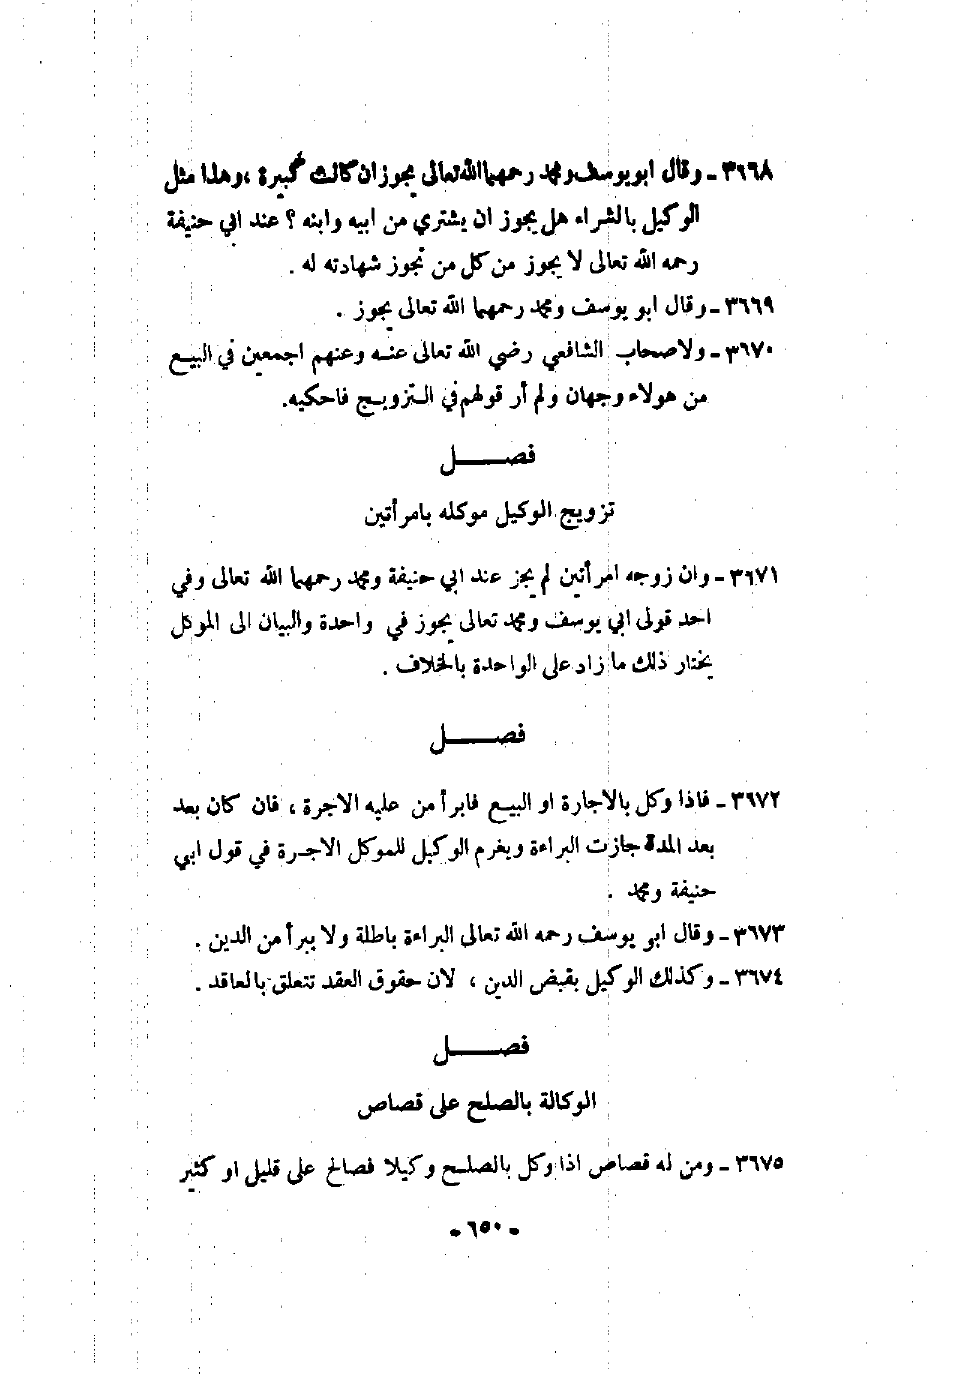 ٣٦٦٨ ـ وقال ابو يوسف ومحمد رحمهما الله تعالى يجوز ان كانت كبيرة ، وهذا مثل
الوكيل بالشراء هل يجوز ان يشتري من ابيه وابنه ؟ عند ابي حنيفة
رحمه الله تعالى لا يجوز من كل من تجوز شهادته له .
٣٦٦٩ ـ وقال ابو يوسف ومحمد رحمهما الله تعالى يجوز .
٣٦٧٠ ـ ولاصحاب الشافعي رضي الله تعالى عنه وعنهم اجمعين في البيع
من هولاء وجهان ولم أر قولهم في التزويج فاحكيه.
فصل
تزويج الوكيل موكله بامرأتين
٣٦٧١ ـ وان زوجه امرأتين لم يجز عند ابي حنيفة ومحمد رحمهما الله تعالى وفي
احد قولى ابي يوسف ومحمد تعالى يجوز في واحدة والبيان الى الموكل
يختار ذلك ما زاد على الواحدة بالخلاف .
فصل
٣٦٧٢ ـ فاذا وكل بالاجارة او البيع فابرأ من عليه الاجرة ، فان كان بعد
بعد المدة جازت البراءة ويغرم الوكيل للموكل الاجرة في قول ابي
حنيفة ومحمد .
٣٦٧٣ ـ وقال ابو يوسف رحمه الله تعالى البراءة باطلة ولا يبرأ من الدين .
٣٦٧٤ ـ وكذلك الوكيل بقبض الدين ، لان حقوق العقد تتعلق بالعاقد .
فصل
الوكالة بالصلح على قصاص
٣٦٧٥ ـ ومن له قصاص اذا وكل بالصلح وكيلا فصالح على قليل او كثير
ـ ٦٥٠ ـ